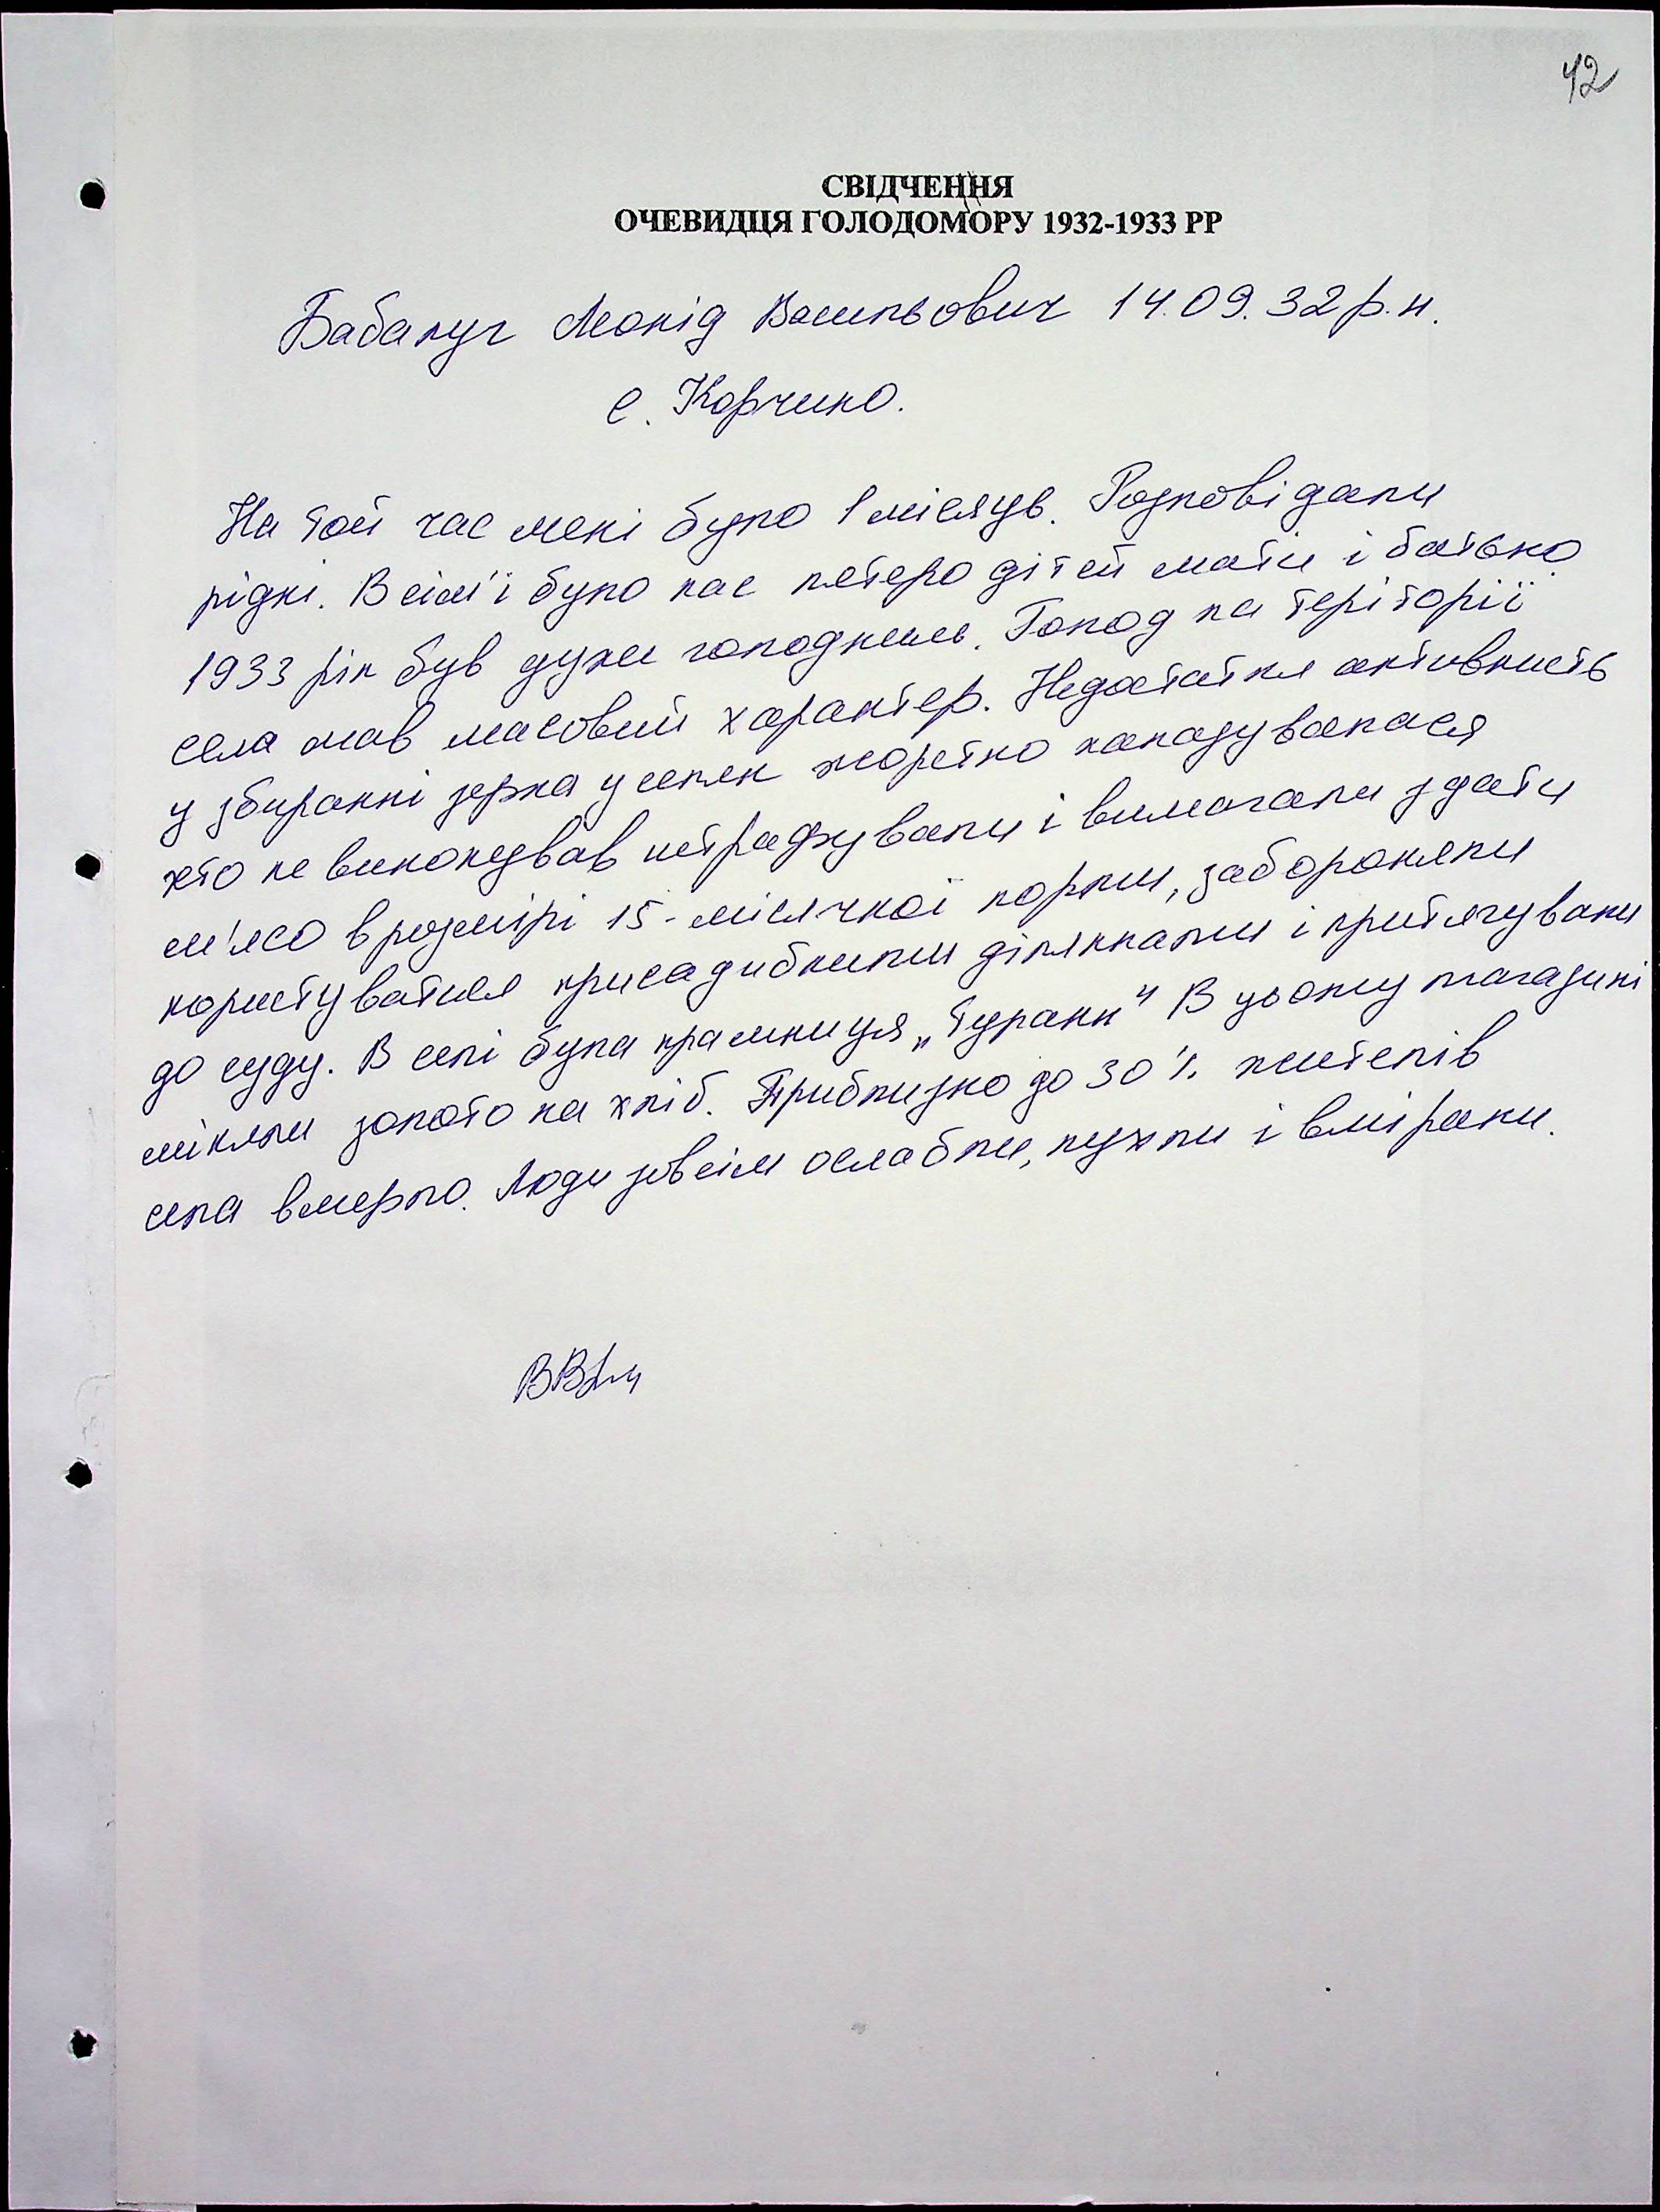 42
СВІДЧЕННЯ
ОЧЕВИДЦЯ ГОЛОДОМОРУ 1932-1933 РР
Бабалуг Леонід Васильович 14.09.32 р.н.
с. Корчино.
На той час мені було 1 місяців. Розповідали
рідні. В сім'ї було нас пятеро дітей мати і батько
1933 рік був дуже голодним. Голод на теріторії
села мав масовий характер. Недостатня активність
у збиранні зерна у селян жоретко каналувалася
хто не виконував штрафували і вимагали здати
м'ясо в розмірі 15-місячної норми, забороняли
користуватися присадибними ділянками і притягували
до суду. В селі була крамниця „Турани" В цьому магазині
міняли золото на хліб. Приблизно до 30% жителів
села вмерло. Люди зовсім ослабли, пухли і вмірали.